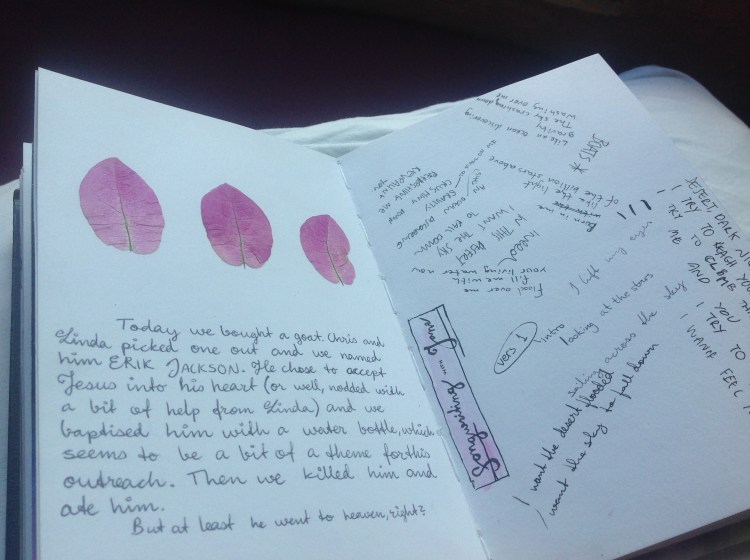 Today we bought a goat. Chris and
Linda picked one out and we named
him ERIK JACKSON. He chose to accept
Jesus into his heart (or well, nodded with
a bit of help from Linda) and we
baptised him with a water bottle, which
seems to be a bit of a theme for this
outreach. Then we killed him and
ate him.
But at least he went to heaven, right?
Songwriting with Jana
vers 1
Intro
I lift my eyes
looking at the stars
sailing across the sky
I want the desert flooded
I want the sky to fall down
DESERT, DARK
I TRY TO REACH YOU
I TRY TO CLIMB
ME AND YOU
I TRY TO
I WANNA FEEL
BOATS *
Like an ocean discovering
gravity
The sky crashing down
washing over me
Born in me
like the light
of the billion stars above
I WANT THE SKY
TO FALL DOWN
IN THIS DESERT
I NEED
Flood over me
fill me with
your living water now